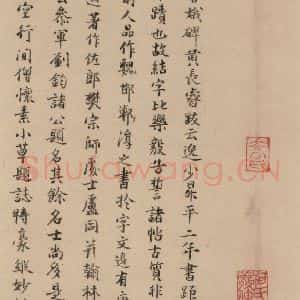 娥碑黄長睿跋云逸少昇平二年書距
蹟也故結字比樂毅告誓諸帖古質非
人品作魏邯鄲淳之書於字文邉有
著作佐郎樊宗師處士盧同并翰林
叅軍劉鈞諸公題名其餘名士尚多是
空行间僧懷素小草題誌特豪縱妙
Shufawang.CN